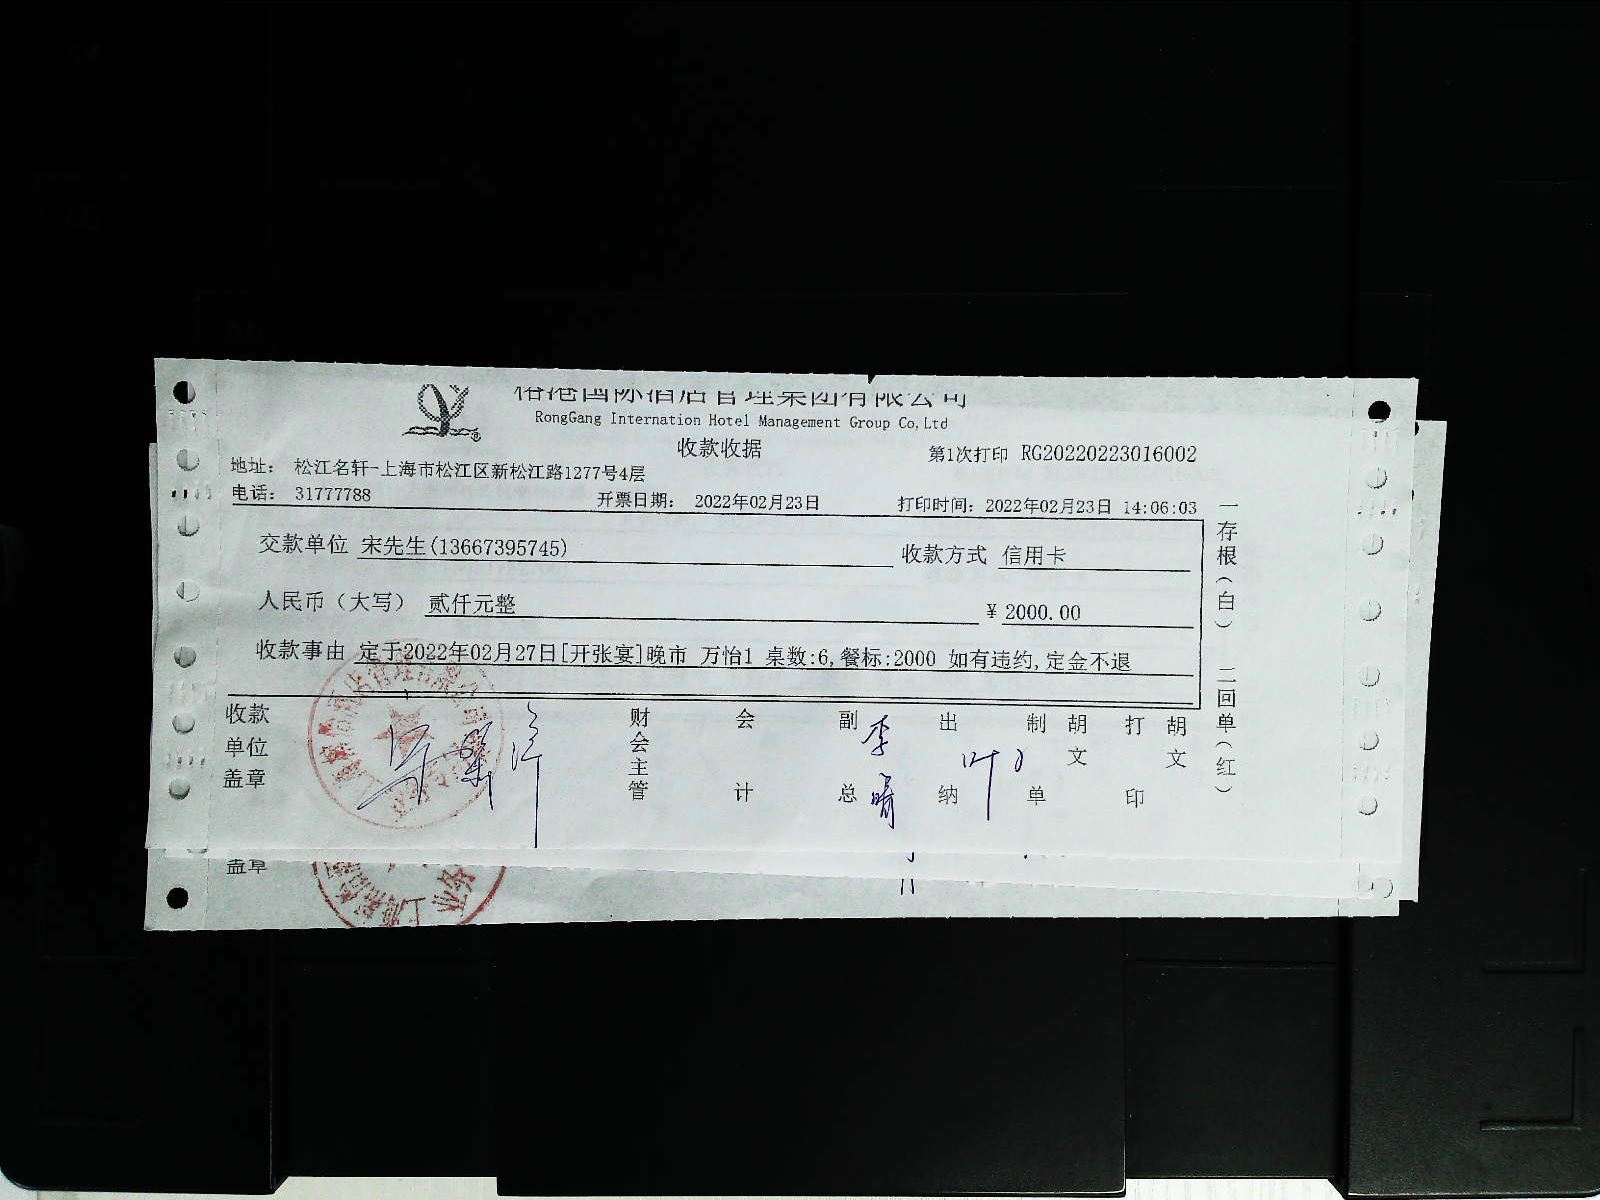 榕港国际酒店管理集团有限公司
RongGang Internation Hotel Management Group Co,Ltd
收款收据
第1次打印 RG20220223016002
地址: 松江名轩-上海市松江区新松江路1277号4层
电话: 31777788
开票日期: 2022年02月23日
打印时间: 2022年02月23日 14:06:03
交款单位 宋先生(13667395745)
收款方式 信用卡
人民币(大写) 贰仟元整
¥ 2000.00
收款事由 定于2022年02月27日[开张宴]晚市 万怡1 桌数:6,餐标:2000 如有违约,定金不退
收款单位盖章
财会主管
会计
副总 李晴
出纳
制单 胡文
打印 胡文
一存根(白) 二回单(红)
盖章